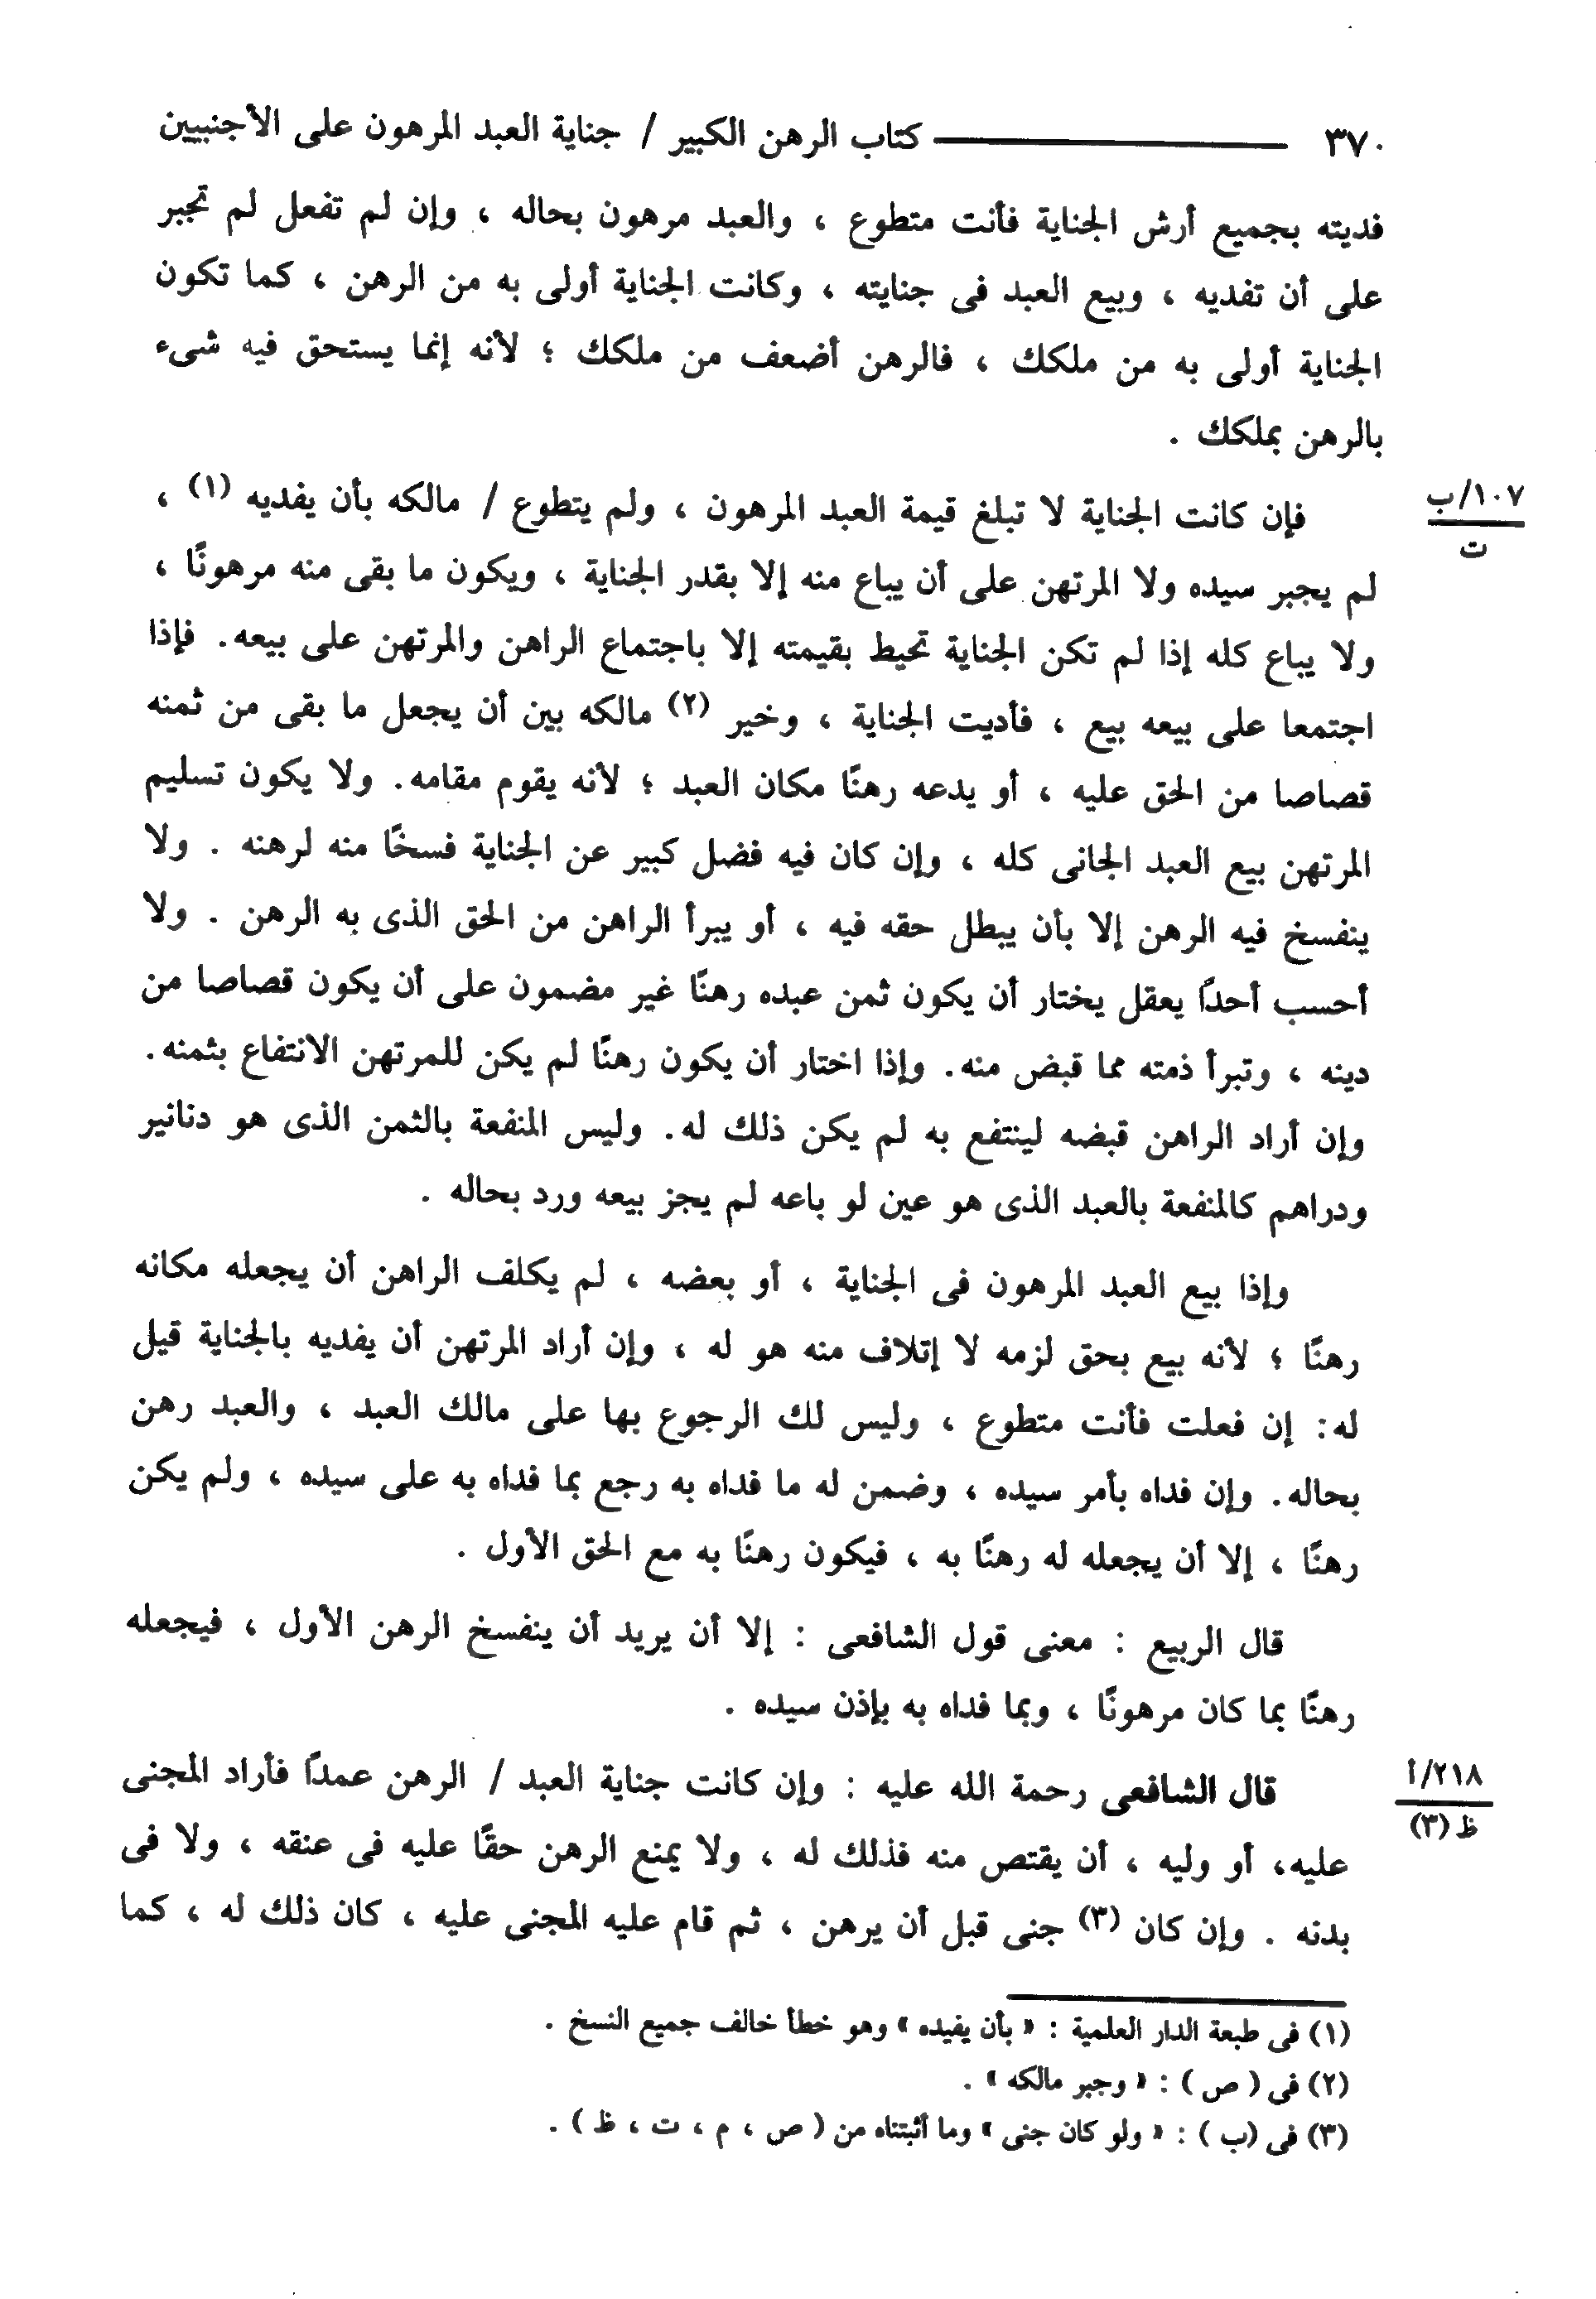 ٣٧٠ كتاب الرهن الكبير / جناية العبد المرهون على الأجنبيين
فديته بجميع أرش الجناية فأنت متطوع ، والعبد مرهون بحاله ، وإن لم تفعل لم تجبر
على أن تفديه ، وبيع العبد فى جنايته ، وكانت الجناية أولى به من الرهن ، كما تكون
الجناية أولى به من ملكك ، فالرهن أضعف من ملكك ؛ لأنه إنما يستحق فيه شىء
بالرهن بملكك .
١٠٧/ب
ت
فإن كانت الجناية لا تبلغ قيمة العبد المرهون ، ولم يتطوع / مالكه بأن يفديه (١) ،
لم يجبر سيده ولا المرتهن على أن يباع منه إلا بقدر الجناية ، ويكون ما بقى منه مرهونًا ،
ولا يباع كله إذا لم تكن الجناية تحيط بقيمته إلا باجتماع الراهن والمرتهن على بيعه. فإذا
اجتمعا على بيعه بيع ، فأديت الجناية ، وخير (٢) مالكه بين أن يجعل ما بقى من ثمنه
قصاصا من الحق عليه ، أو يدعه رهنًا مكان العبد ؛ لأنه يقوم مقامه. ولا يكون تسليم
المرتهن بيع العبد الجانى كله ، وإن كان فيه فضل كبير عن الجناية فسخًا منه لرهنه . ولا
ينفسخ فيه الرهن إلا بأن يبطل حقه فيه ، أو يبرأ الراهن من الحق الذى به الرهن . ولا
أحسب أحدًا يعقل يختار أن يكون ثمن عبده رهنًا غير مضمون على أن يكون قصاصا من
دينه ، وتبرأ ذمته مما قبض منه. وإذا اختار أن يكون رهنًا لم يكن للمرتهن الانتفاع بثمنه.
وإن أراد الراهن قبضه لينتفع به لم يكن ذلك له. وليس المنفعة بالثمن الذى هو دنانير
ودراهم كالمنفعة بالعبد الذى هو عين لو باعه لم يجز بيعه ورد بحاله .
وإذا بيع العبد المرهون فى الجناية ، أو بعضه ، لم يكلف الراهن أن يجعله مكانه
رهنًا ؛ لأنه بيع بحق لزمه لا إتلاف منه هو له ، وإن أراد المرتهن أن يفديه بالجناية قيل
له: إن فعلت فأنت متطوع ، وليس لك الرجوع بها على مالك العبد ، والعبد رهن
بحاله. وإن فداه بأمر سيده ، وضمن له ما فداه به رجع بما فداه به على سيده ، ولم يكن
رهنًا ، إلا أن يجعله له رهنًا به ، فيكون رهنًا به مع الحق الأول .
قال الربيع : معنى قول الشافعى : إلا أن يريد أن ينفسخ الرهن الأول ، فيجعله
رهنًا بما كان مرهونًا ، وبما فداه به بإذن سيده .
٢١٨/أ
ظ (٣)
قال الشافعى رحمة الله عليه : وإن كانت جناية العبد / الرهن عمدًا فأراد المجنى
عليه، أو وليه ، أن يقتص منه فذلك له ، ولا يمنع الرهن حقًا عليه فى عنقه ، ولا فى
بدنه . وإن كان (٣) جنى قبل أن يرهن ، ثم قام عليه المجنى عليه ، كان ذلك له ، كما
(١) فى طبعة الدار العلمية : « بأن يفيده » وهو خطأ خالف جميع النسخ .
(٢) فى ( ص ) : « وجبر مالكه » .
(٣) فى (ب ) : « ولو كان جنى » وما أثبتناه من ( ص ، م ، ت ، ظ ) .